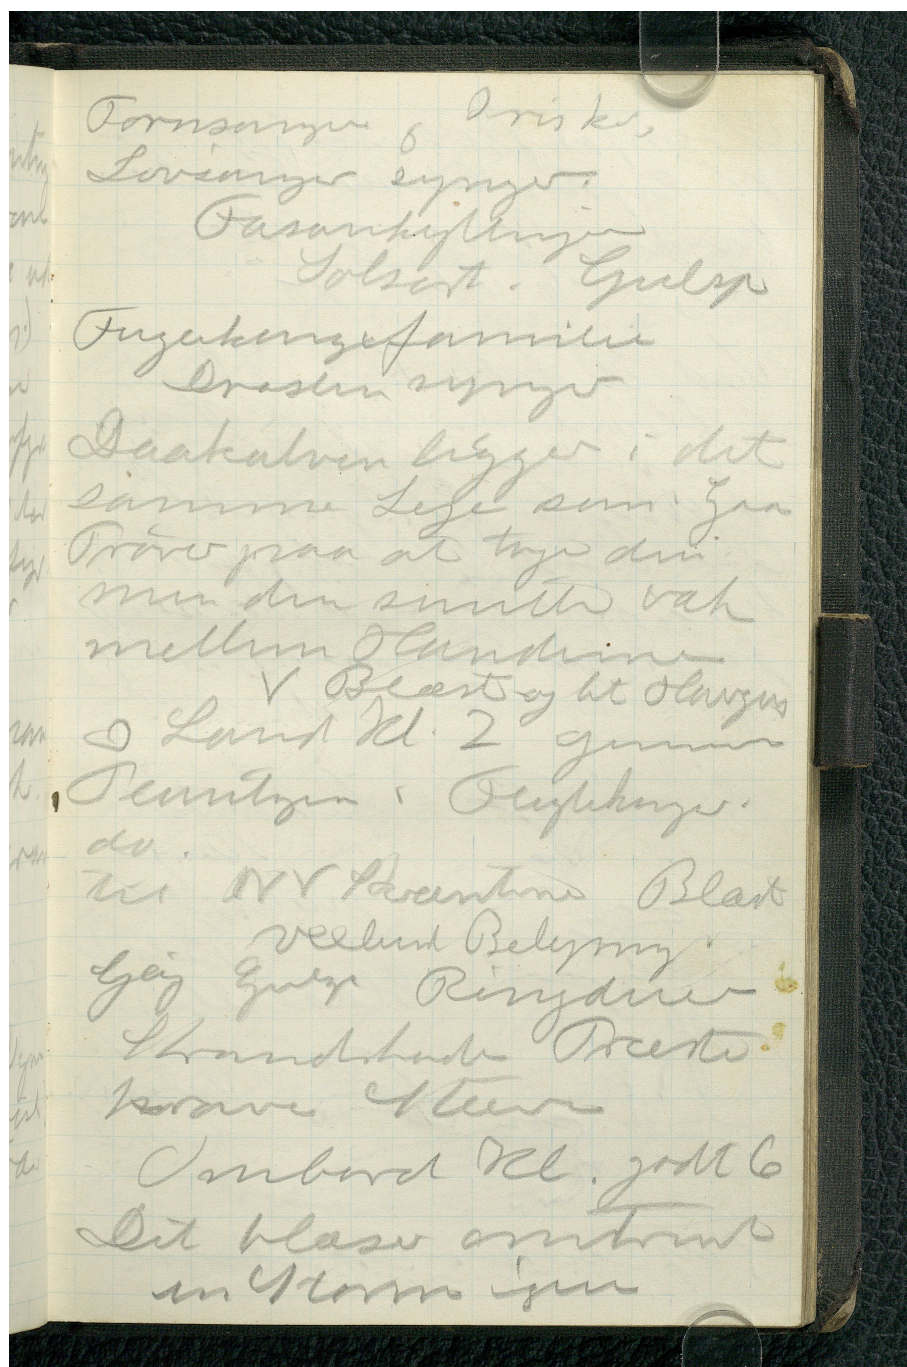 Tornsanger Iriske,
Løvsanger synger.
Fasankyllinger
Solsort. Gulsp
Fuglekongefamilie
Droslen synger
Daakalven ligger i det
samme Leje som igaa
Prøver paa at tage den
men den smutter væk
mellem Hænderne
V Blæst og let
I Land Kl. 2 gennem
Plantagen i Fuglekonger.
do.
til NV Skrænterne Blæst
Belysning.
Gøg Gulsp Ringduer
Strandskade Præste
krave Stære
Ombord Kl. godt 6
Det blæser omtrent
en Storm igen